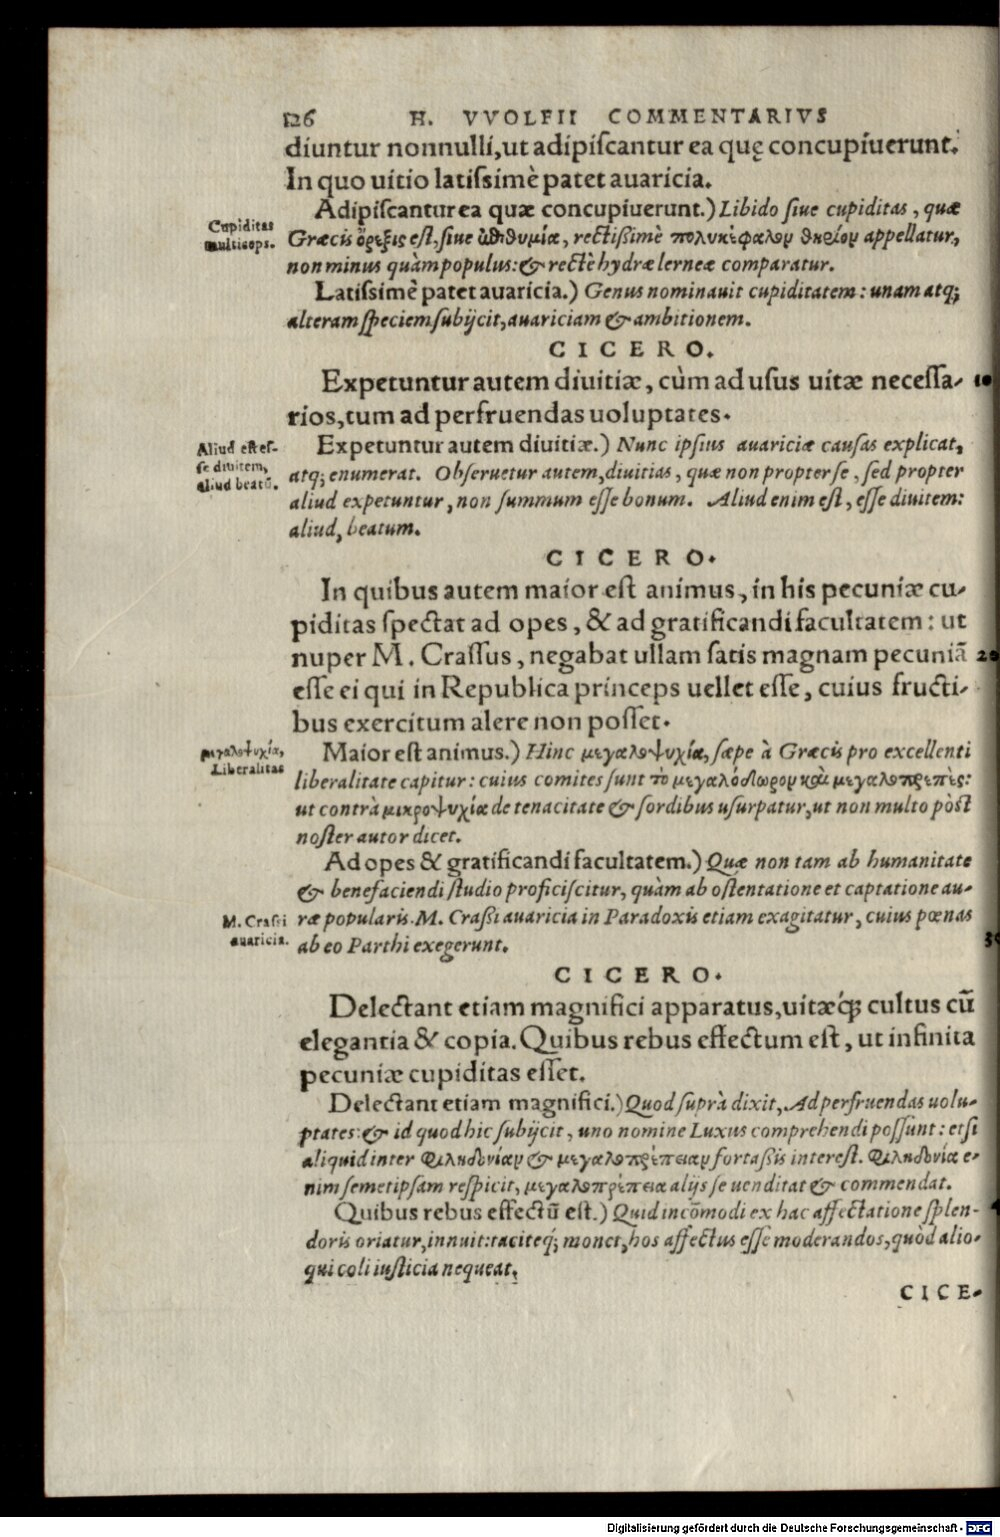 126 H. VVOLFII COMMENTARIVS
diuntur nonnulli, ut adipiſcantur ea quę concupiuerunt.
In quo uitio latiſsimè patet auaricia.
Adipiſcantur ea quæ concupiuerunt.) Libido ſiue cupiditas, quæ
Cupiditas
multiceps.
Græcis ὄρεξις eſt, ſiue ἐπιθυμία, rectißimè πολυκέφαλον θηρίον appellatur,
non minus quàm populus: & rectè hydræ lerneæ comparatur.
Latiſsimè patet auaricia.) Genus nominauit cupiditatem: unam atq;
alteram ſpeciem ſubijcit, auariciam & ambitionem.
CICERO.
Expetuntur autem diuitiæ, cùm ad uſus uitæ neceſſa- 10
rios, tum ad perfruendas uoluptates.
Aliud eſt eſ-
ſe diuitem,
aliud beatũ.
Expetuntur autem diuitiæ.) Nunc ipſius auariciæ cauſas explicat,
atq; enumerat. Obſeruetur autem, diuitias, quæ non propter ſe, ſed propter
aliud expetuntur, non ſummum eſſe bonum. Aliud enim eſt, eſſe diuitem:
aliud, beatum.
CICERO.
In quibus autem maior eſt animus, in his pecuniæ cu-
piditas ſpectat ad opes, & ad gratificandi facultatem: ut
nuper M. Craſſus, negabat ullam ſatis magnam pecuniã 20
eſſe ei qui in Republica princeps uellet eſſe, cuius fructi-
bus exercitum alere non poſſet.
μεγαλοψυχία,
Liberalitas
Maior eſt animus.) Hinc μεγαλοψυχία, ſæpe à Græcis pro excellenti
liberalitate capitur: cuius comites ſunt τὸ μεγαλόδωρον καὶ μεγαλοπρεπές:
ut contrà μικροψυχία de tenacitate & ſordibus uſurpatur, ut non multo pòſt
noſter autor dicet.
Ad opes & gratificandi facultatem.) Quæ non tam ab humanitate
& benefaciendi ſtudio proficiſcitur, quàm ab oſtentatione et captatione au-
M. Craſsi
auaricia.
ræ popularis. M. Craßi auaricia in Paradoxis etiam exagitatur, cuius pœnas
ab eo Parthi exegerunt. 30
CICERO.
Delectant etiam magnifici apparatus, uitæq́; cultus cũ
elegantia & copia. Quibus rebus effectum eſt, ut infinita
pecuniæ cupiditas eſſet.
Delectant etiam magnifici.) Quod ſuprà dixit, Ad perfruendas uolu-
ptates: & id quod hic ſubijcit, uno nomine Luxus comprehendi poſſunt: etſi
aliquid inter φιληδονίαν & μεγαλοπρέπειαν fortaßis intereſt. φιληδονία e-
nim ſemetipſam reſpicit, μεγαλοπρέπεια alijs ſe uenditat & commendat.
Quibus rebus effectũ eſt.) Quid incõmodi ex hac affectatione ſplen-
doris oriatur, innuit: taciteq́; monet, hos affectus eſſe moderandos, quòd alio-
qui coli iuſticia nequeat.
CICE-
Digitalisierung gefördert durch die Deutsche Forschungsgemeinschaft - DFG